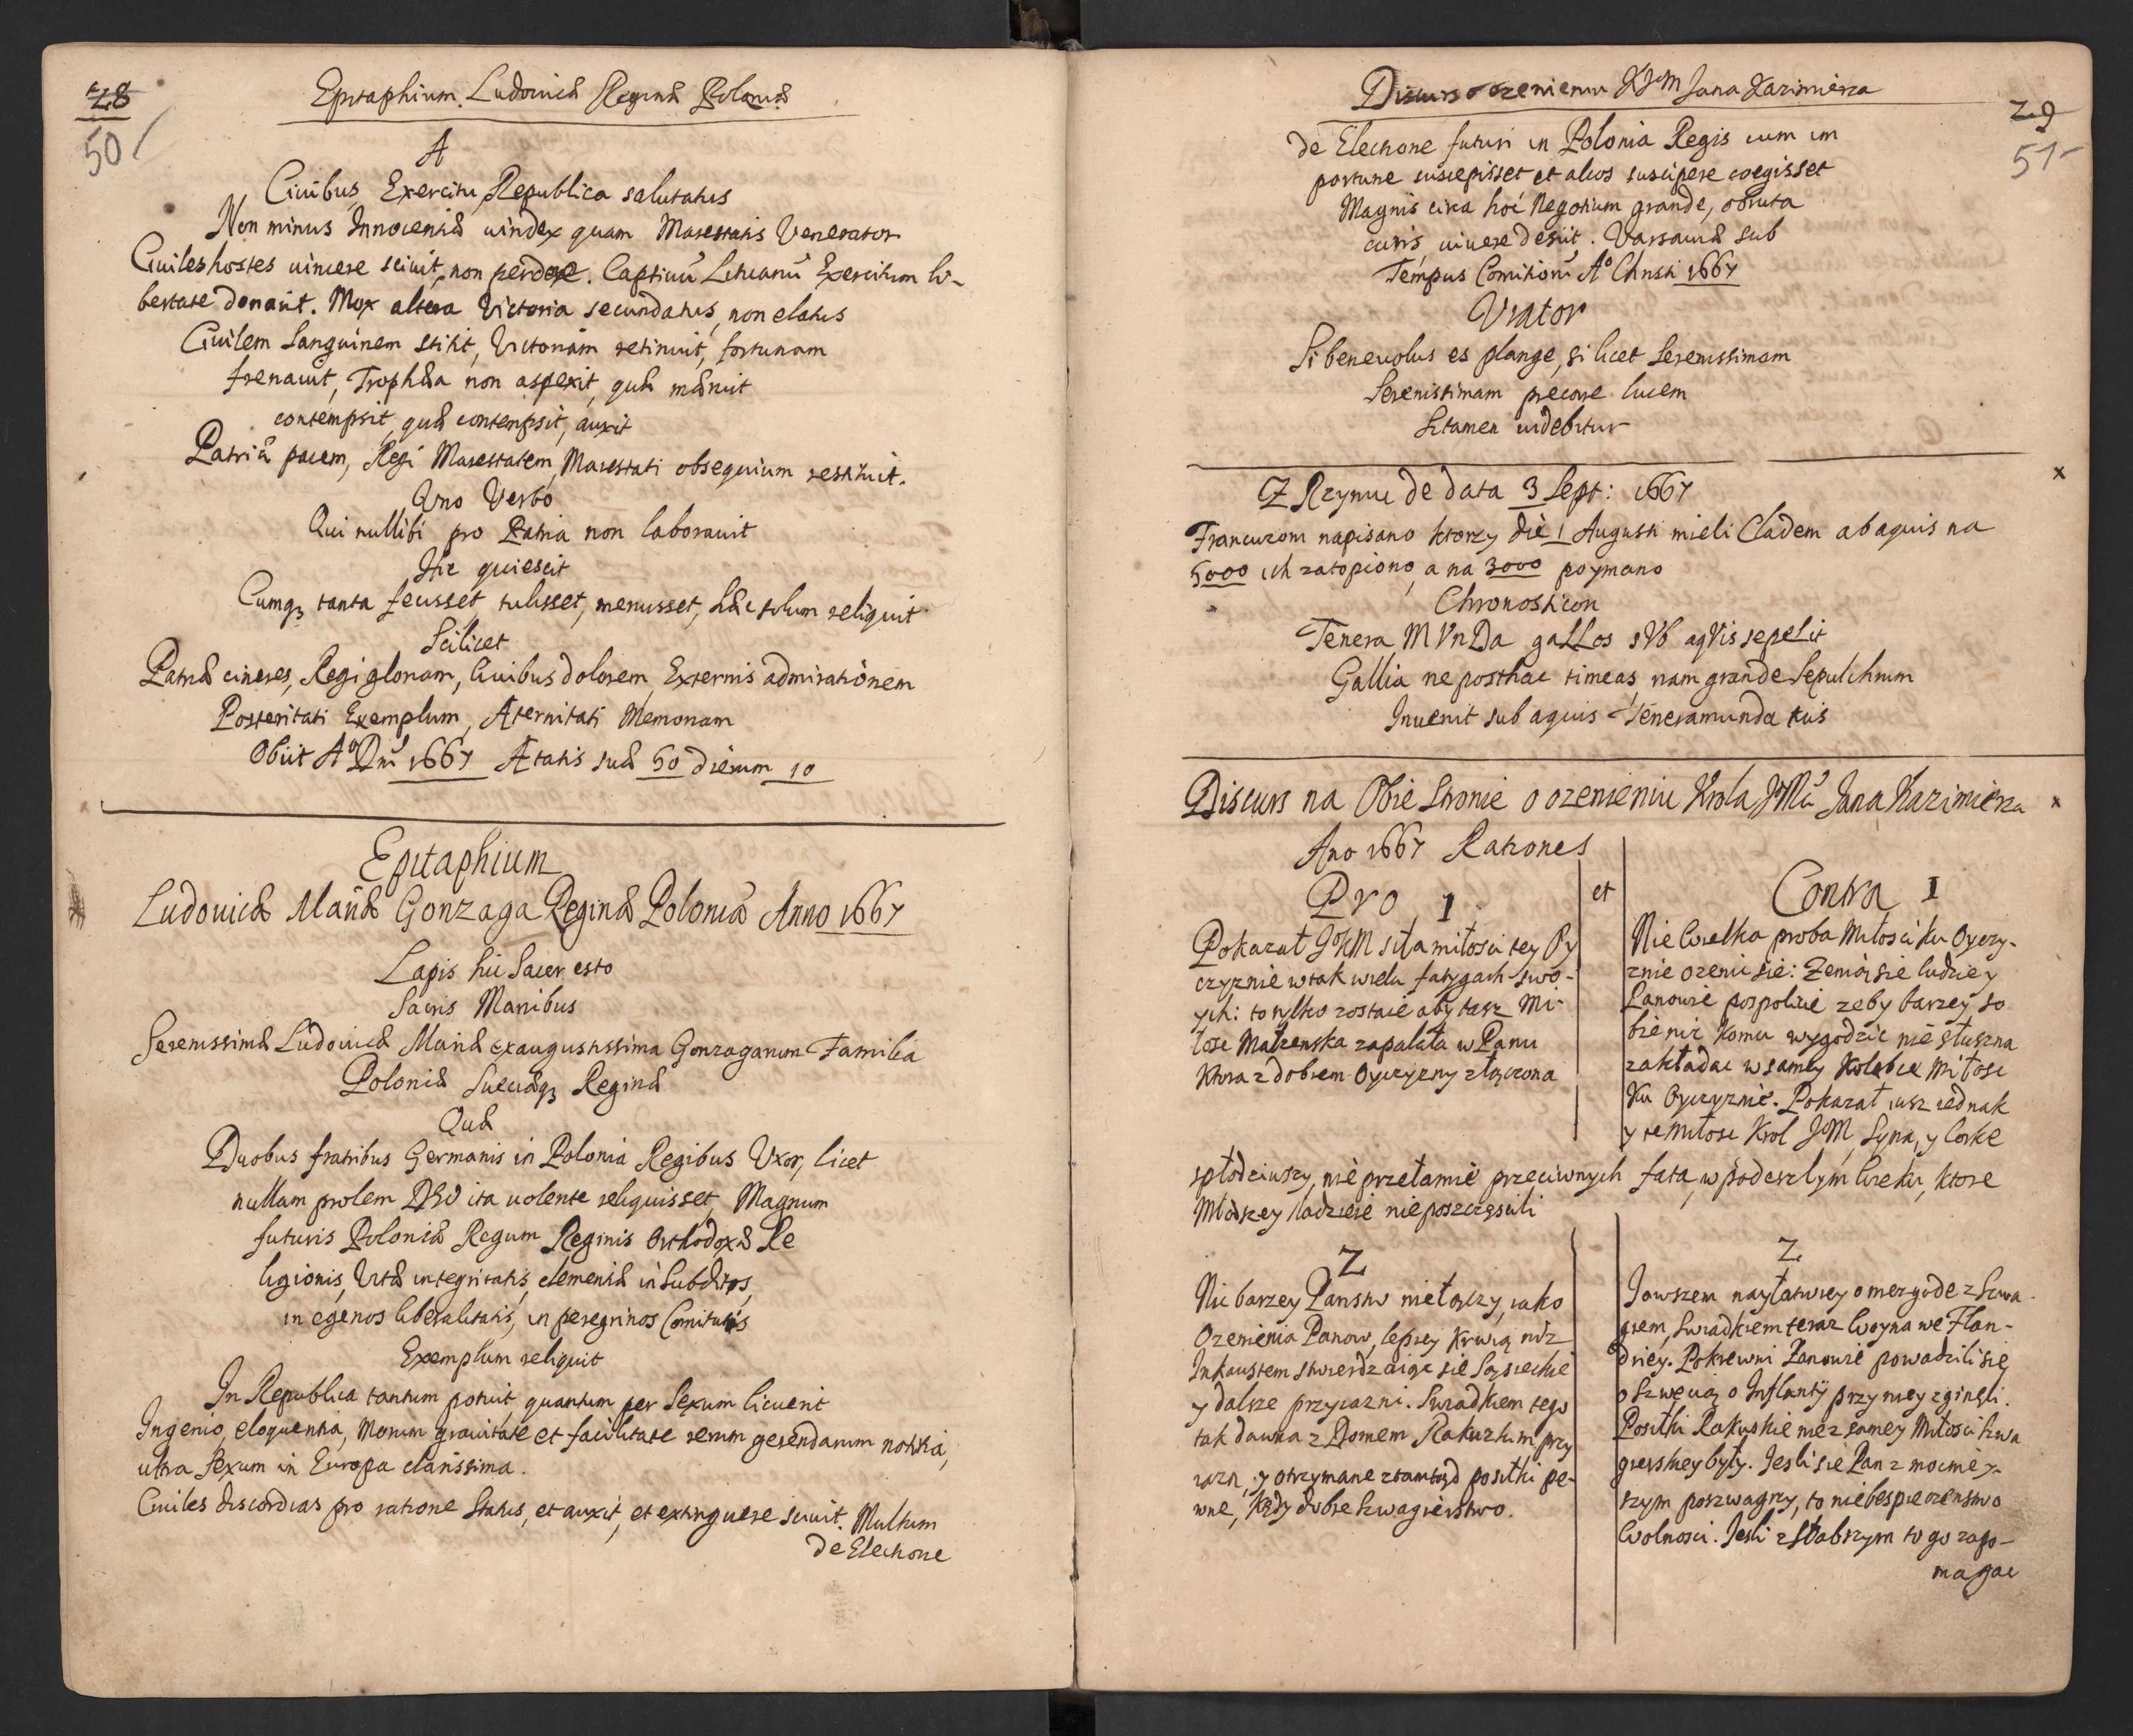 28
50
Epitaphium Ludouicæ Reginæ Poloniæ
A
Ciuibus, Exercitu, Republica salutatus
Non minus Innocentiæ uindex quam Maiestatis Venerator
Ciuiles hostes uincere sciuit, non perdere. Captiuũ Lituanũ Exercitum li-
bertate donauit. Mox altera Victoria secundatus, non elatus
Ciuilem Sanguinem stitit, Victoriam retinuit, fortunam
frenauit, Trophæa non aspexit, quæ meruit
contempsit, quæ contempsit, auxit
Patriæ pacem, Regi Maiestatem, Maiestati obsequium restituit.
Uno Verbo
Qui nullibi pro Patria non laborauit
Hic quiescit
Cumqꝫ tanta fecisset, tulisset, meruisset, hæc solum reliquit
Scilicet
Patriæ cineres, Regi gloriam, Ciuibus dolorem, Externis admirationem
Posteritati Exemplum, Aternitati Memoriam
Obiit Aº Dni 1667 Ætatis suæ 50 dierum 10
Epitaphium
Ludouicæ Mariæ Gonzaga Reginæ Poloniæ Anno 1667
Lapis hic Sacer esto
Sacris Manibus
Serenissimæ Ludouicæ Mariæ ex augustissima Gonzagarum Familia
Poloniæ Sueciæqꝫ Reginæ
Quæ
Duobus fratribus Germanis in Polonia Regibus Uxor, licet
nullam prolem DEO ita uolente reliquisset, Magnum
futuris Poloniæ Regum Reginis Orthodoxæ Re
ligionis, Vitæ integritatis, clementiæ in Subditos,
in egenos liberalitatis, in peregrinos Comitatis
Exemplum reliquit
In Republica tantum potuit, quantum per Sexum licuerit
Ingenio, eloquentia, Morum grauitate et facilitate rerum gerendarum notitia,
ultra Sexum in Europa clarissima.
Ciuiles discordias pro ratione Status, et auxit, et extinguere sciuit. Multum
de Electione
Discurs o ozenieniu KJM Jana Kazimierza
29
51
de Electione futuri in Polonia Regis cum im
portune suscepisset et alios suscipere coegisset
Magnis circa hoc Negotium grande, obruta
curis uiuere desiit. Varsauiæ sub
Tempus Comitiorũ Aº Christi 1667
Viator
Si beneuolus es plange, si licet Serenissimam
Serenissimam precare lucem
Si tamen uidebitur
Z Rzymu de data 3 Sept: 1667
x
Francuzom napisano ktorzy die 1 Augusti mieli Cladem ab aquis na
5000 ich zatopiono, a na 3000 poymano
Chronosticon
Tenera MVnDa gaLLos sVb aqVis sepeLit
Gallia ne posthac timeas, nam grande Sepulchrum
Inuenit sub aquis Teneramunda tuis
Discurs na Obie Stronie o ozenieniu Krola JºMci Jana Kazimierza x
Ano 1667 Rationes
Pro 1
et
Contra 1
Pokazał JºKM siła miłosci tey Oy
czyznie w tak wielu fatygach swo-
ych: to tylko zostaie aby tasz Mi-
łosc Małzenska zapałała w Panu
Ktora z dobrem Oyczyzny złączona
Nie Wielka proba Miłosci ku Oyczy-
znie ozenic sie: Zenią sie ludzie y
Panowie pospolicie zeby barzey so
bie niz komu wygodzic nie słuszna
zakładac w samey Kolebce Miłosc
Ku Oyczyznie. Pokazał iusz iednak
y te miłosc Krol JºM, Syna, y Corke
spłodziwszy, nie przełamie przeciwnych fata, w podeszłym wieku, ktore
Młodszey ladziesie nieposzczęscili
2
Nic barzey Panstw nie łączy, iako
Ozenienia Panow, lepiey krwią niz
Inkaustem stwierdzaiąc sie Sąsieckie
y dalsze przyiazni. Swiadkiem tego
tak dawna z Domem Rakuzkim przy
iazn, y otrzymane ztamtąd posiłki pe-
wne, kędy dobre Szwagierstwo.
2
I owszem nayłatwiey o niezgode z Szwa-
grem, Swiadkiem teraz Woyna we Flan-
driey. Pokrewni Panowie powadzili się
o Szwęcią o Inflanty przy niey zginęli.
Posiłki Rakuskie nie z samey Miłosci Szwa
gierskiey były. Jesli sie Pan z mocniey-
szym poszwagrzy, to niebespieczenstwo
Wolnosci. Jesli z Słabszym to go zapo-
magac